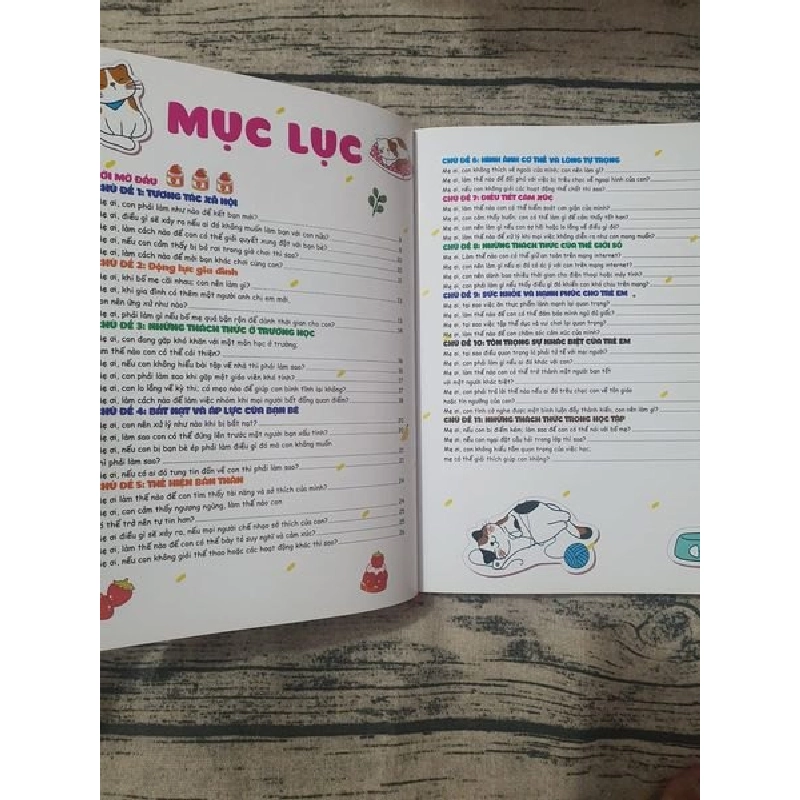 MỤC LỤC
ỜI MỞ ĐẦU
CHỦ ĐỀ 1: TƯƠNG TÁC XÃ HỘI
Mẹ ơi, con phải làm như nào để kết bạn mới?
Mẹ ơi, điều gì sẽ xảy ra nếu ai đó không muốn làm bạn với con nữa?
Mẹ ơi, làm cách nào để con có thể giải quyết xung đột với bạn bè?
Mẹ ơi, nếu con cảm thấy bị bỏ rơi trong giờ chơi thì sao?
Mẹ ơi, làm cách nào để mời bạn khác chơi cùng con?
CHỦ ĐỀ 2: Động lực gia đình
Mẹ ơi, khi bố mẹ cãi nhau; con nên làm gì?
Mẹ ơi, khi gia đình có thêm một người anh chị em mới,
con nên ứng xử như nào?
Mẹ ơi, phải làm gì nếu bố mẹ quá bận rộn để dành thời gian cho con?
CHỦ ĐỀ 3: NHỮNG THÁCH THỨC Ở TRƯỜNG HỌC
Mẹ ơi, con đang gặp khó khăn với một môn học ở trường;
làm thế nào con có thể cải thiện?
Mẹ ơi, nếu con không hiểu bài tập về nhà thì phải làm sao?
Mẹ ơi, con phải làm sao khi gặp một giáo viên khó tính?
Mẹ ơi, con lo lắng về kỳ thi; có mẹo nào để giúp con bình tĩnh lại không?
Mẹ ơi, làm cách nào để làm việc nhóm khi mọi người bất đồng quan điểm?
CHỦ ĐỀ 4: BẮT NẠT VÀ ÁP LỰC CỦA BẠN BÈ
Mẹ ơi, con nên xử lý như nào khi bị bắt nạt?
Mẹ ơi, làm sao con có thể đứng lên trước một người bạn xấu tính?
Mẹ ơi, nếu con bị bạn bè ép phải làm điều gì đó mà con không muốn
thì phải làm sao?
Mẹ ơi, nếu có ai đó tung tin đồn về con thì phải làm sao?
CHỦ ĐỀ 5: THỂ HIỆN BẢN THÂN
Mẹ ơi làm thế nào để con tìm thấy tài năng và sở thích của mình?
Mẹ ơi, con cảm thấy ngượng ngùng, làm thế nào con
có thể trở nên tự tin hơn?
Mẹ ơi điều gì sẽ xảy ra, nếu mọi người chế nhạo sở thích của con?
Mẹ ơi, làm thế nào để con có thể bày tỏ suy nghĩ và cảm xúc?
Mẹ ơi, nếu con không giỏi thể thao hoặc các hoạt động khác thì sao?
CHỦ ĐỀ 6: HÌNH ẢNH CƠ THỂ VÀ LÒNG TỰ TRỌNG
Mẹ ơi, con không thích vẻ ngoài của mình; con nên làm gì?
Mẹ ơi, làm thế nào để đối phó với việc bị trêu chọc về ngoại hình của con?
Mẹ ơi, nếu con không giỏi các hoạt động thể chất thì sao?
CHỦ ĐỀ 7: ĐIỀU TIẾT CẢM XÚC
Mẹ ơi, làm thế nào con có thể kiểm soát cơn giận của mình?
Mẹ ơi, con cảm thấy buồn; con có thể làm gì để cảm thấy tốt hơn?
Mẹ ơi, con nên làm gì nếu con sợ hãi hoặc bị lo lắng về điều gì đó?
Mẹ ơi, làm thế nào để xử lý khi mọi việc không diễn ra như con mong muốn?
CHỦ ĐỀ 8: NHỮNG THÁCH THỨC CỦA THẾ GIỚI SỐ
Mẹ ơi, Làm thế nào con có thể giữ an toàn trên mạng internet?
Mẹ ơi, con nên làm gì nếu ai đó có ác ý với con trên mạng internet?
Mẹ ơi, con nên dành bao nhiêu thời gian cho điện thoại hoặc máy tính?
Mẹ ơi, con phải làm gì nếu thấy điều gì đó khiến con khó chịu trên mạng?
CHỦ ĐỀ 9: SỨC KHỎE VÀ HẠNH PHÚC CHO TRẺ EM
Mẹ ơi, tại sao việc ăn thực phẩm lành mạnh lại quan trọng?
Mẹ ơi, làm thế nào để con có thể đảm bảo mình ngủ đủ giấc?
Mẹ ơi, tại sao việc tập thể dục và vui chơi lại quan trọng?
Mẹ ơi, làm thế nào để con chăm sóc cảm xúc của mình?
CHỦ ĐỀ 10: TÔN TRỌNG SỰ KHÁC BIỆT CỦA TRẺ EM
Mẹ ơi, tại sao điều quan trọng là phải tử tế với mọi người?
Mẹ ơi, con phải làm gì nếu ai đó khác với con?
Mẹ ơi, làm thế nào con có thể trở thành một người bạn tốt
với một người khác biệt?
Mẹ ơi, con phải trả lời thế nào nếu ai đó trêu chọc con về tôn giáo
hoặc tín ngưỡng của con?
Mẹ ơi, con tình cờ nghe được một bình luận đầy thành kiến, con nên làm gì?
CHỦ ĐỀ 11: NHỮNG THÁCH THỨC TRONG HỌC TẬP
Mẹ ơi, nếu con bị điểm kém; làm sao để con có thể nói với bố mẹ?
Mẹ ơi, nếu con ngại đặt câu hỏi trong lớp thì sao?
Mẹ ơi, con không hiểu tầm quan trọng của việc học,
mẹ có thể giải thích giúp con không?